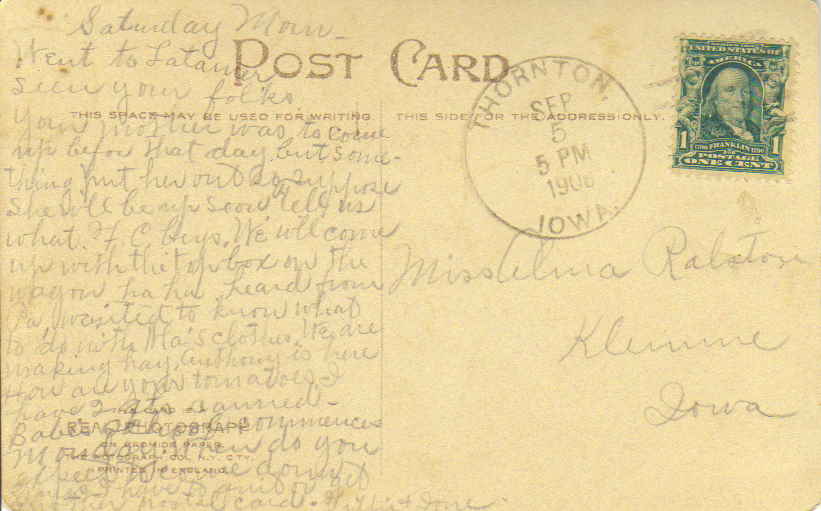 Saturday Morn-
Went to Latimer
seen your folks
Your mother was to come
up befor that day but some-
thing put her out so suppose
She will be up soon tell us
what F. C. buys. We will come
up with the top box on the
wagon ha ha. heard from
Pa wanted to know what
to do with Ma's clothes. We are
making hay. Anthony is here
How are your tomatoes. I
have 2 qts canned-
Babe's school commences
Monday. When do you
another postal card.
POST CARD
THIS SPACE MAY BE USED FOR WRITING.
THIS SIDE FOR THE ADDRESS ONLY.
THORNTON,
SEP
5
5 PM
IOWA.
UNITED STATES OF
AMERICA
1 1
FRANKLIN
POSTAGE
ONE CENT
Miss Elma Ralston
Klemme
Iowa
REAL PHOTOGRAPH
ON BROMIDE PAPER
THE ROTOGRAPH CO. N.Y. CITY.
PRINTED IN ENGLAND